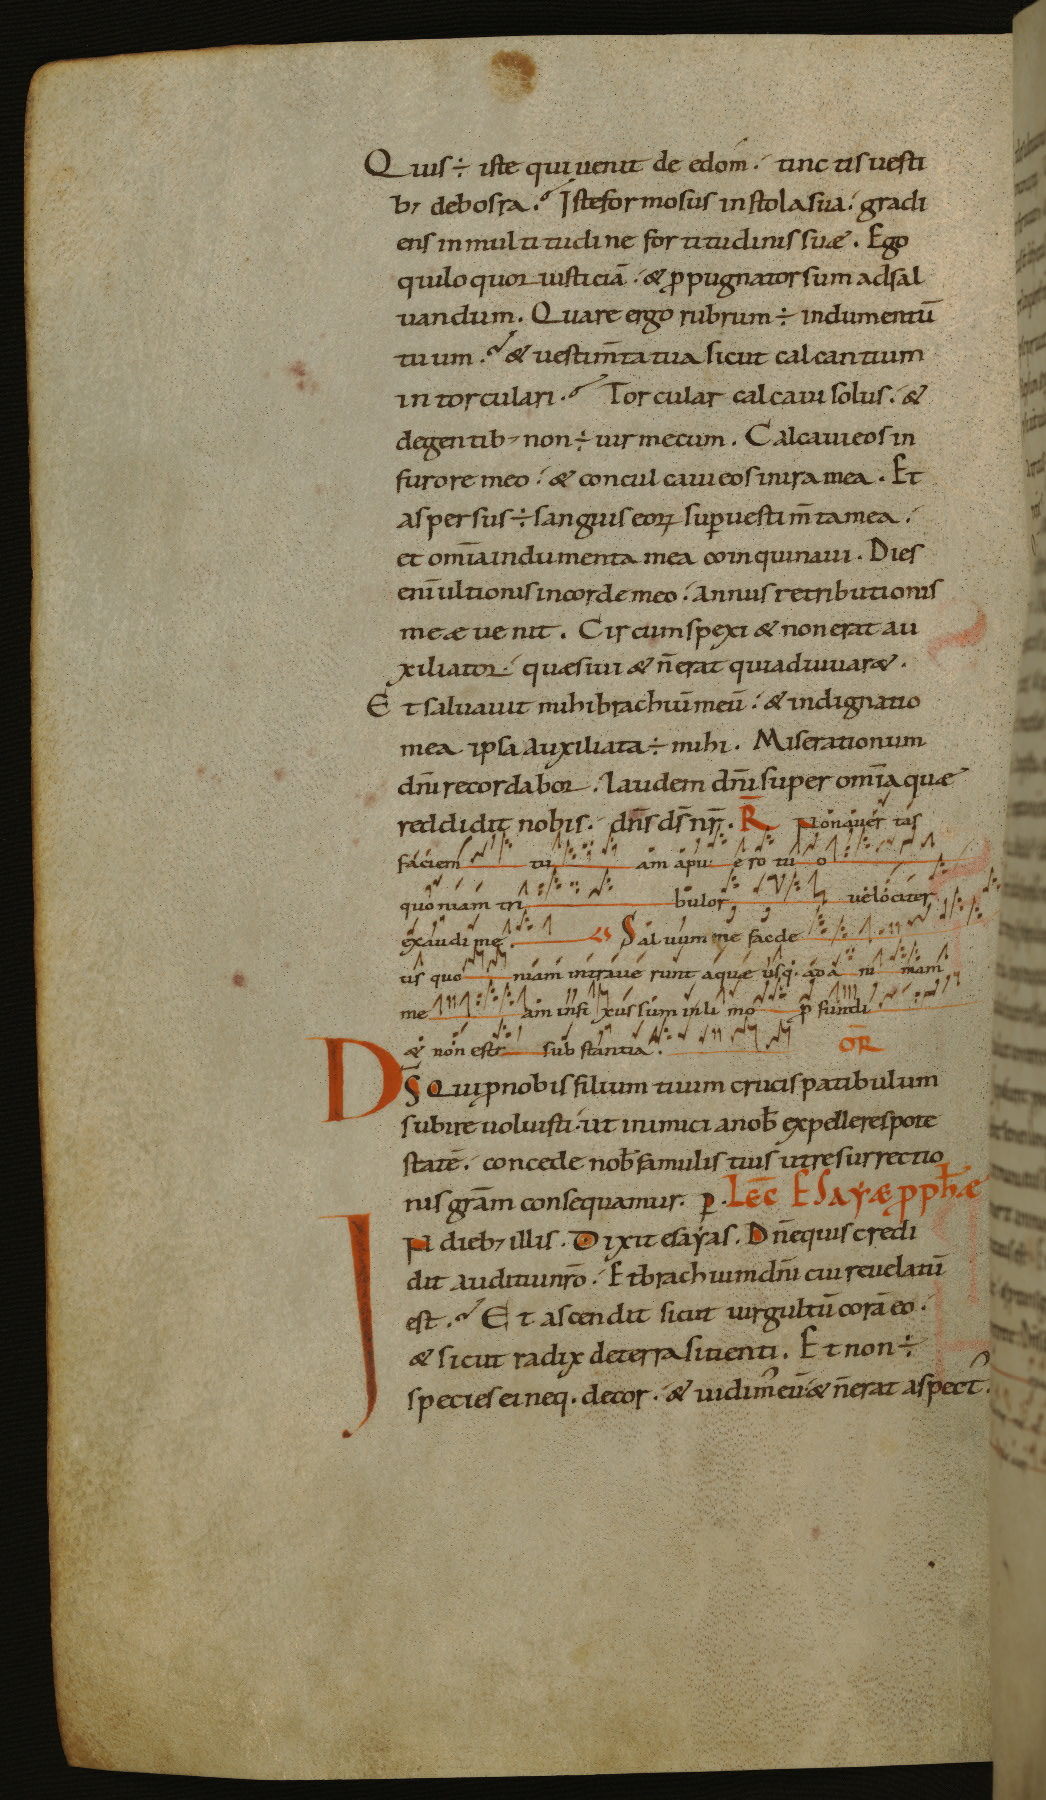 Quis ÷ iste qui venit de edom. tinctis vesti
b; de bosra. Iste formosus in stola sua. gradi
ens in multitudine fortitudinis suæ. Ego
qui loquor iusticiā. & ꝓpugnator sum ad sal
uandum. Quare ergo rubrum ÷ indumentū
tuum. & uestim̄ta tua sicut calcantium
in torculari. Torcular calcaui solus. &
de gentib; non ÷ uir mecum. Calcaui eos in
furore meo. & conculcaui eos in ira mea. Et
aspersus ÷ sanguis eoꝝ suꝑ uestim̄ta mea.
et om̄ia indumenta mea coinquinaui. Dies
eni̅ ultionis in corde meo. Annus retributionis
meæ uenit. Circumspexi & non erat au
xiliator. quæsiui & n̄ erat qui adiuuar&.
Et saluauit mihi brachiū meū. & indignatio
mea ipsa auxiliata ÷ mihi. Miserationum
dn̄i recordabor. laudem dn̄i super om̄ia quæ
reddidit nobis. dn̄s ds̄ nr̄. R̄ Non auertas
faciem tu am a pu e ro tu o
quoniam tri bulor uelociter
exaudi me. Saluum me fac de
us quo niam intraue runt aquæ usq; ad a ni mam
me am infi xus sum in li mo ꝓfundi
& non est sub stantia. OR̄
DS Qui ꝓ nobis filium tuum crucis patibulum
subire uoluisti. ut inimici a nob̄ expelleres pote
statē. concede nob̄ famulis tuis ut resurrectio
nis grām consequamur. ꝑ. Lec̄ ESayæ ꝓph̄æ
IN dieb; illis. Dixit esayas. Dn̄e quis credi
dit auditui nr̄o. Et brachium dn̄i cui reuelatū
est. Et ascendit sicut uirgultū corā eo.
& sicut radix de terra sitienti. Et non ÷
species ei neq. decor. & uidim' eū & n̄ erat aspect'.